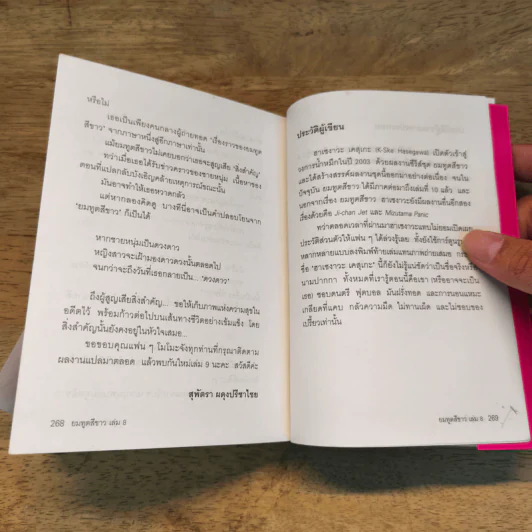 หรือไม่
เธอเป็นเพียงคนกลางผู้ถ่ายทอด "เรื่องราวของยมทูต
สีขาว" จากภาษาหนึ่งสู่อีกภาษาเท่านั้น
แม้ยมทูตสีขาวไม่เคยบอกว่าเธอจะสูญเสีย 'สิ่งสำคัญ'
ทว่าเมื่อเธอได้รับรู้ข่าวคราวของชายหนุ่ม เนื้อหาของ
ตอนที่แปลกลับบังเอิญคล้ายเหตุการณ์ขณะนั้น
มันอาจทำให้เธอหวาดกลัว
แต่หากลองคิดดู บางทีนี่อาจเป็นคำปลอบโยนจาก
"ยมทูตสีขาว" ก็เป็นได้
หากชายหนุ่มเป็นดวงดาว
หญิงสาวจะเฝ้ามองดาวดวงนั้นตลอดไป
จนกว่าจะถึงวันที่เธอกลายเป็น... 'ดวงดาว'
ถึงผู้สูญเสียสิ่งสำคัญ... ขอให้เก็บภาพแห่งความสุขใน
อดีตไว้ พร้อมก้าวต่อไปบนเส้นทางชีวิตอย่างเข้มแข็ง โดย
สิ่งสำคัญนั้นยังคงอยู่ในหัวใจเสมอ...
ขอขอบคุณแฟน ๆ โมโมะจังทุกท่านที่กรุณาติดตาม
ผลงานแปลมาตลอด แล้วพบกันใหม่เล่ม 9 นะคะ สวัสดีค่ะ
สุพัตรา ผดุงปรีชาไชย
268 ยมทูตสีขาว เล่ม 8
ประวัติผู้เขียน
ฮาเซงาวะ เคสุเกะ (K-Ske Hasegawa) เปิดตัวเข้าสู่
วงการน้ำหมึกในปี 2003 ด้วยผลงานซีรีส์ชุด ยมทูตสีขาว
และได้สร้างสรรค์ผลงานชุดนี้ออกมาอย่างต่อเนื่อง จนใน
ปัจจุบัน ยมทูตสีขาว ได้มีภาคต่อมาถึงเล่มที่ 10 แล้ว และ
นอกจากเรื่อง ยมทูตสีขาว ฮาเซงาวะยังมีผลงานอื่นอีกสอง
เรื่องด้วยคือ Ji-chan Jet และ Mizutama Panic
ทว่าตลอดเวลาที่ผ่านมาฮาเซงาวะแทบไม่ยอมเปิดเผย
ประวัติส่วนตัวให้แฟน ๆ ได้ล่วงรู้เลย ทั้งยังใช้การ์ตูน
หลากหลายแบบลงพิมพ์ท้ายเล่มแทนภาพถ่ายเสมอ กระทั่ง
ชื่อ "ฮาเซงาวะ เคสุเกะ" นี้ก็ยังไม่รู้แน่ชัดว่าเป็นชื่อจริงหรือ
นามปากกา ทั้งหมดที่เรารู้ตอนนี้คือเขา (หรืออาจจะเป็น
เธอ) ชอบดนตรี ฟุตบอล มันฝรั่งทอด และการนอนแหมะ
เกลียดที่แคบ กลัวความมืด ไม่ทานเผ็ด และไม่ชอบของ
เปรี้ยวเท่านั้น
ยมทูตสีขาว เล่ม 8 269